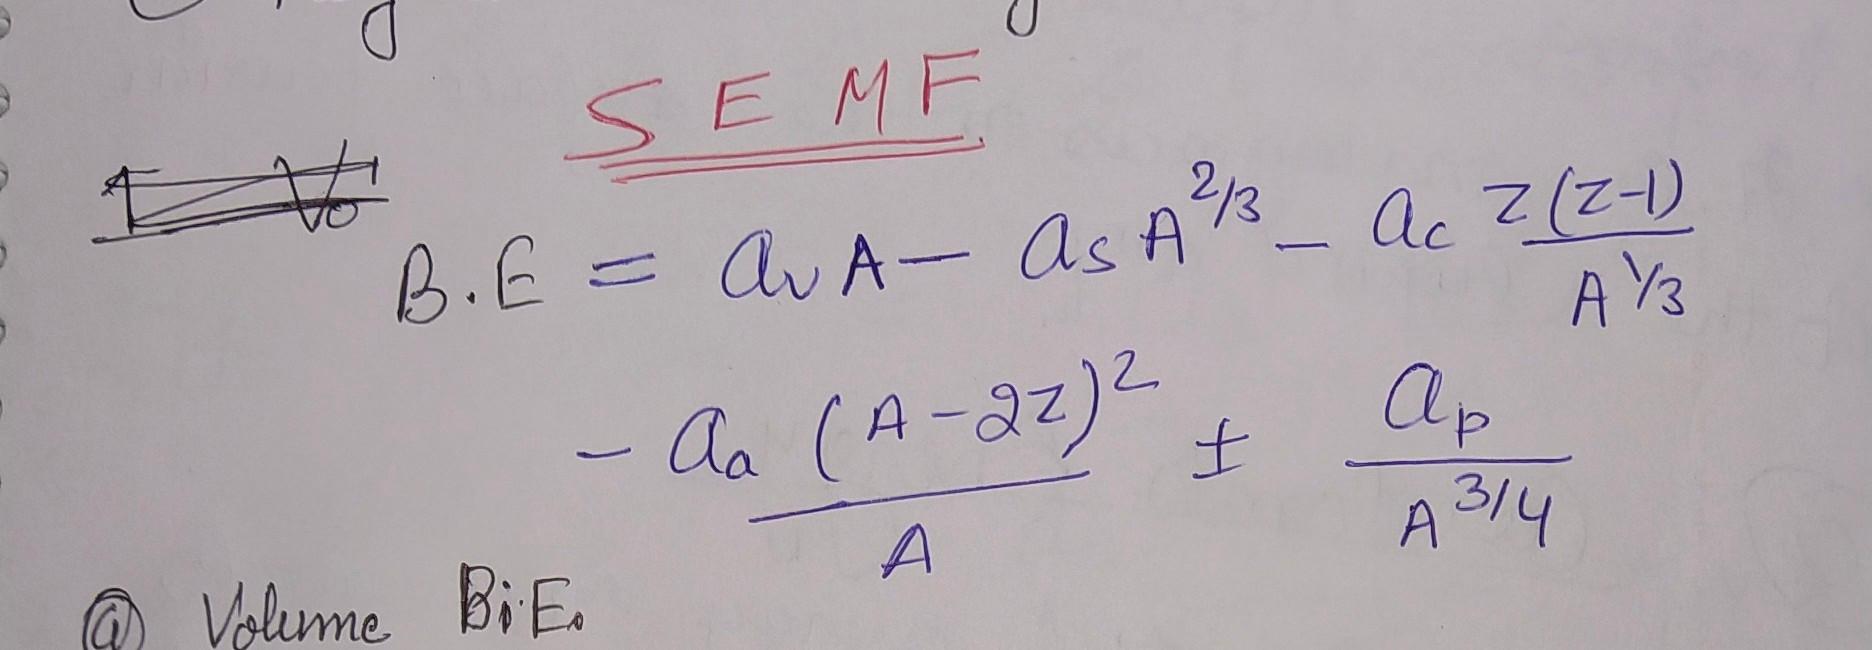 SEMF
B.E = avA - asA^2/3 - ac Z(Z-1)/A^1/3
- aa (A-2Z)^2/A ± ap/A^3/4
@ Volume B.E.